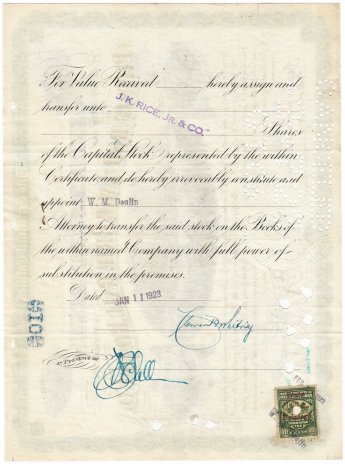 For Value Received hereby assign and
transfer unto J. K. RICE, JR. & CO.
Shares
of the Capital Stock represented by the within
Certificate and do hereby irrevocably constitute and
appoint W. M. Doulin
Attorney to transfer the said stock on the Books of
the within named Company with full power of
substitution in the premises.
Dated JAN 11 1923
IN PRESENCE OF